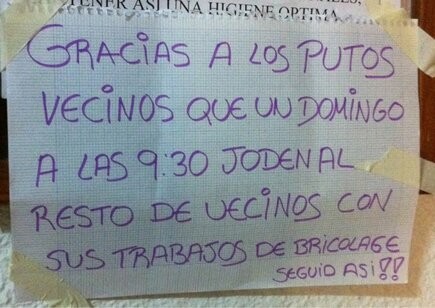 TENER ASI UNA HIGIENE OPTIMA
GRACIAS A LOS PUTOS
VECINOS QUE UN DOMINGO
A LAS 9:30 JODEN AL
RESTO DE VECINOS CON
SUS TRABAJOS DE BRICOLAGE
SEGUID ASI!!